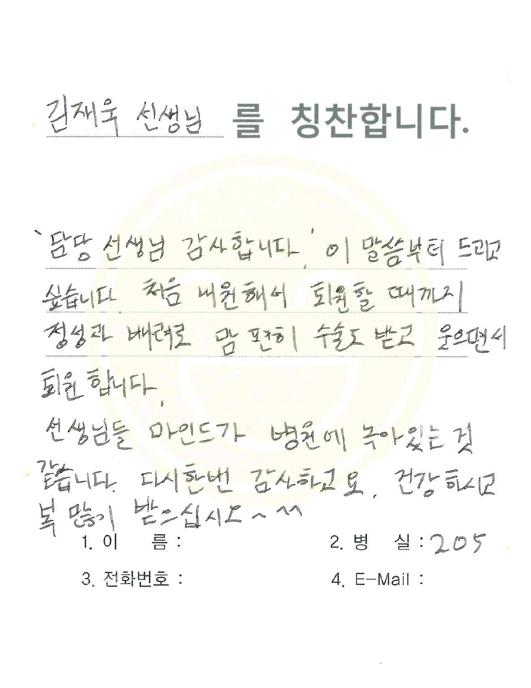 김재욱 선생님 를 칭찬합니다.
'담당 선생님 감사합니다.' 이 말씀부터 드리고
싶습니다. 처음 내원해서 퇴원할 때까지
정성과 배려로 맘 편히 수술도 받고 웃으면서
퇴원합니다.
선생님들 마인드가 병원에 녹아있는 것
같습니다. 다시한번 감사하고요, 건강하시고
복 많이 받으십시오~ ^^
1. 이 름 : 2. 병 실 : 205
3. 전화번호 : 4. E-Mail :